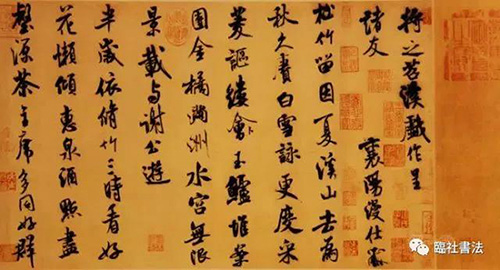 將之苕溪戲作呈
諸友
襄陽漫仕黻
松竹留因夏溪山去為
秋久賡白雪詠更度采
菱謳縷會玉鱸堆案
團金橘滿洲水宮無限
景載与謝公遊
半歲依脩竹三時看好
花懶傾惠泉酒點盡
壑源茶主席多同好群
臨社書法